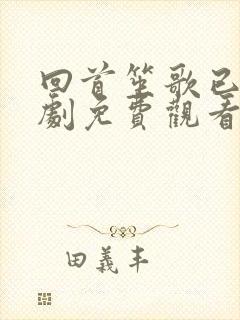 回首笙歌已
劇免費觀看
田義丰